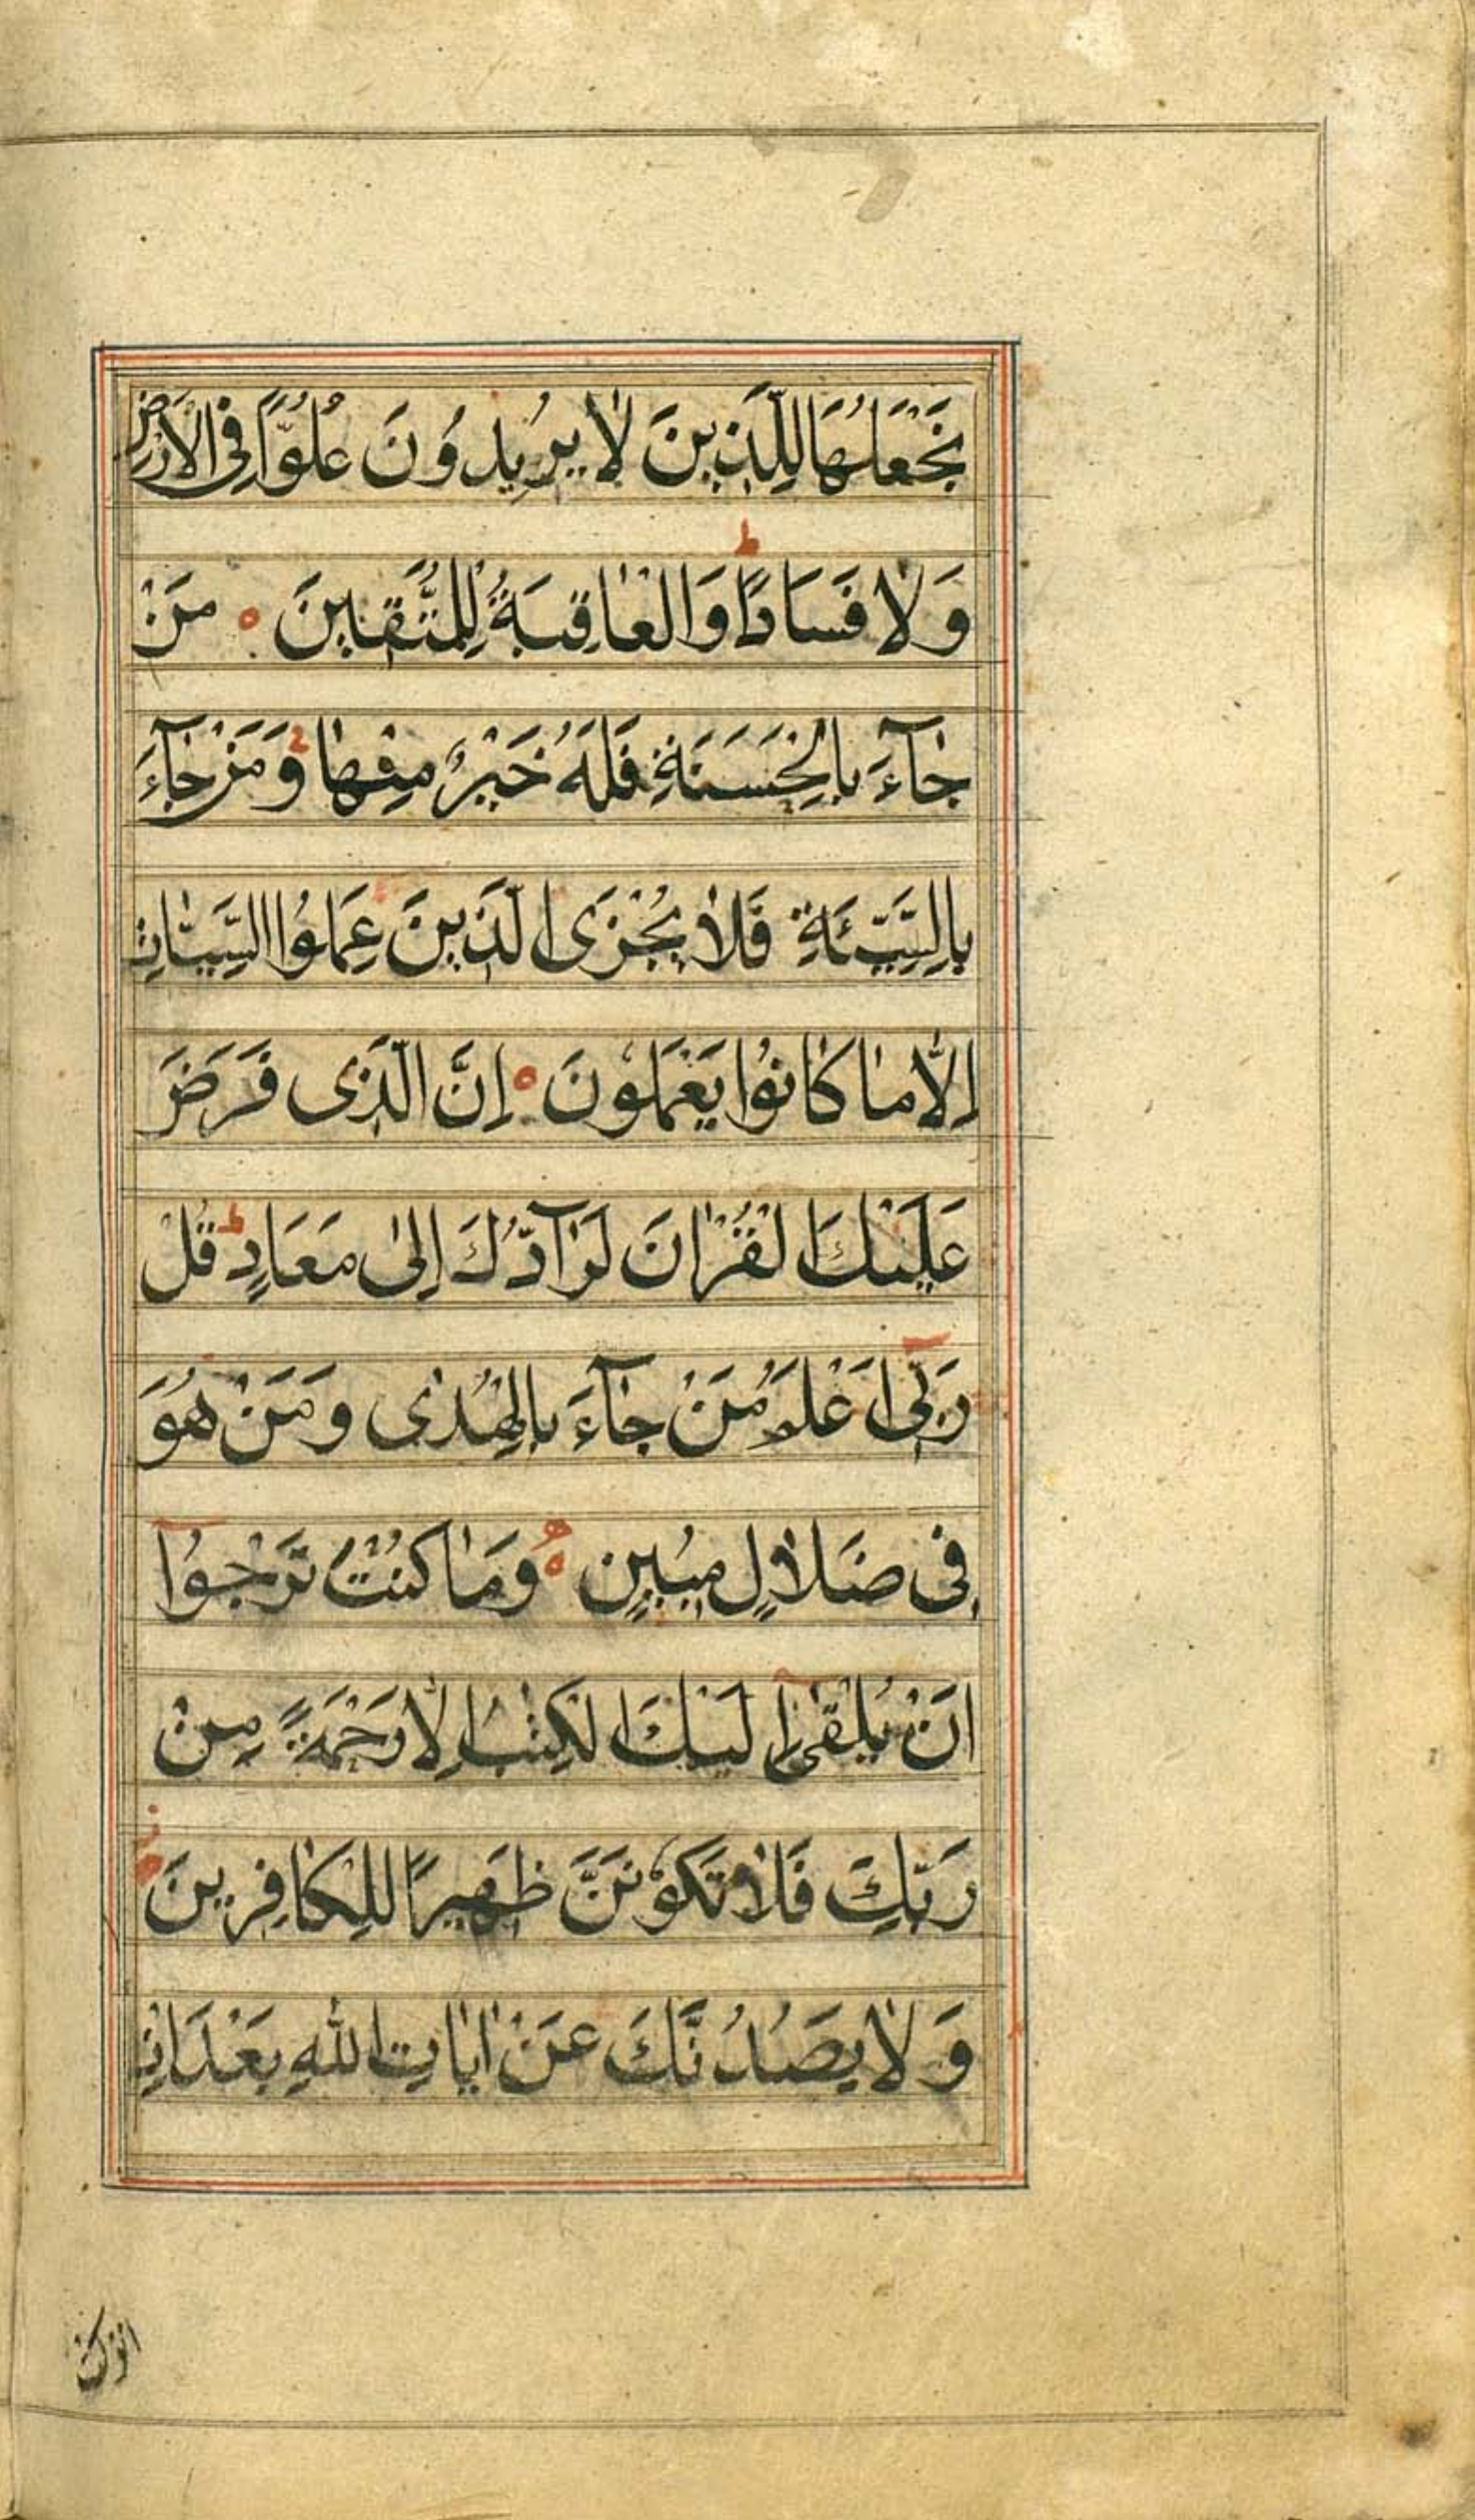 نَجْعَلُهَا لِلَّذِينَ لَا يُرِيدُونَ عُلُوًّا فِی الْاَرْضِ
وَلَا فَسَادًا ط وَالْعَاقِبَةُ لِلْمُتَّقِينَ ه مَنْ
جَآءَ بِالْحَسَنَةِ فَلَهُ خَيْرٌ مِنْهَا وَمَنْ جَآءَ
بِالسَّيِّئَةِ فَلَا يُجْزَی الَّذِينَ عَمِلُوا السَّيِّئَاتِ
اِلَّا مَا كَانُوا يَعْمَلُونَ ه اِنَّ الَّذِی فَرَضَ
عَلَيْكَ الْقُرْاٰنَ لَرَآدُّكَ اِلٰی مَعَادٍ ط قُلْ
رَبِّی اَعْلَمُ مَنْ جَآءَ بِالْهُدٰی وَمَنْ هُوَ
فِی ضَلَالٍ مُبِينٍ ه وَمَا كُنْتَ تَرْجُوآ
اَنْ يُلْقٰی اِلَيْكَ الْكِتٰبُ اِلَّا رَحْمَةً مِنْ
رَبِّكَ فَلَا تَكُونَنَّ ظَهِيرًا لِلْكَافِرِينَ
وَلَا يَصُدُّنَّكَ عَنْ اٰيَاتِ اللهِ بَعْدَ اِذْ
انزلت